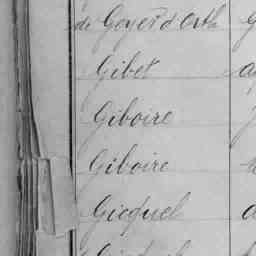 de Goyer d'Orth
Gibet
Giboire
Giboire
Gicquel